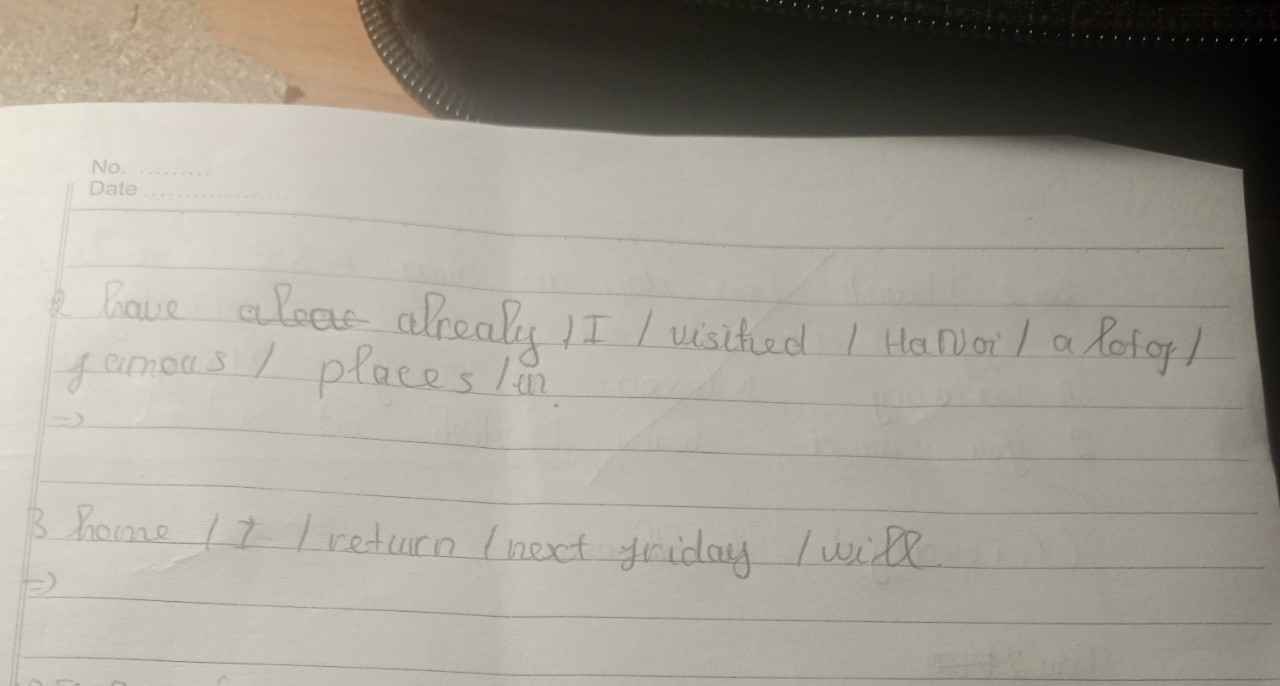 No. ..........
Date ..................
2 have aleac alrealy / I / visited / HaNoi / a lot of /
famous / places / in.
=>
3 home / I / return / next friday / will
=>